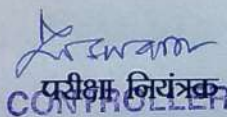 परीक्षा नियंत्रक
CONTROLLER